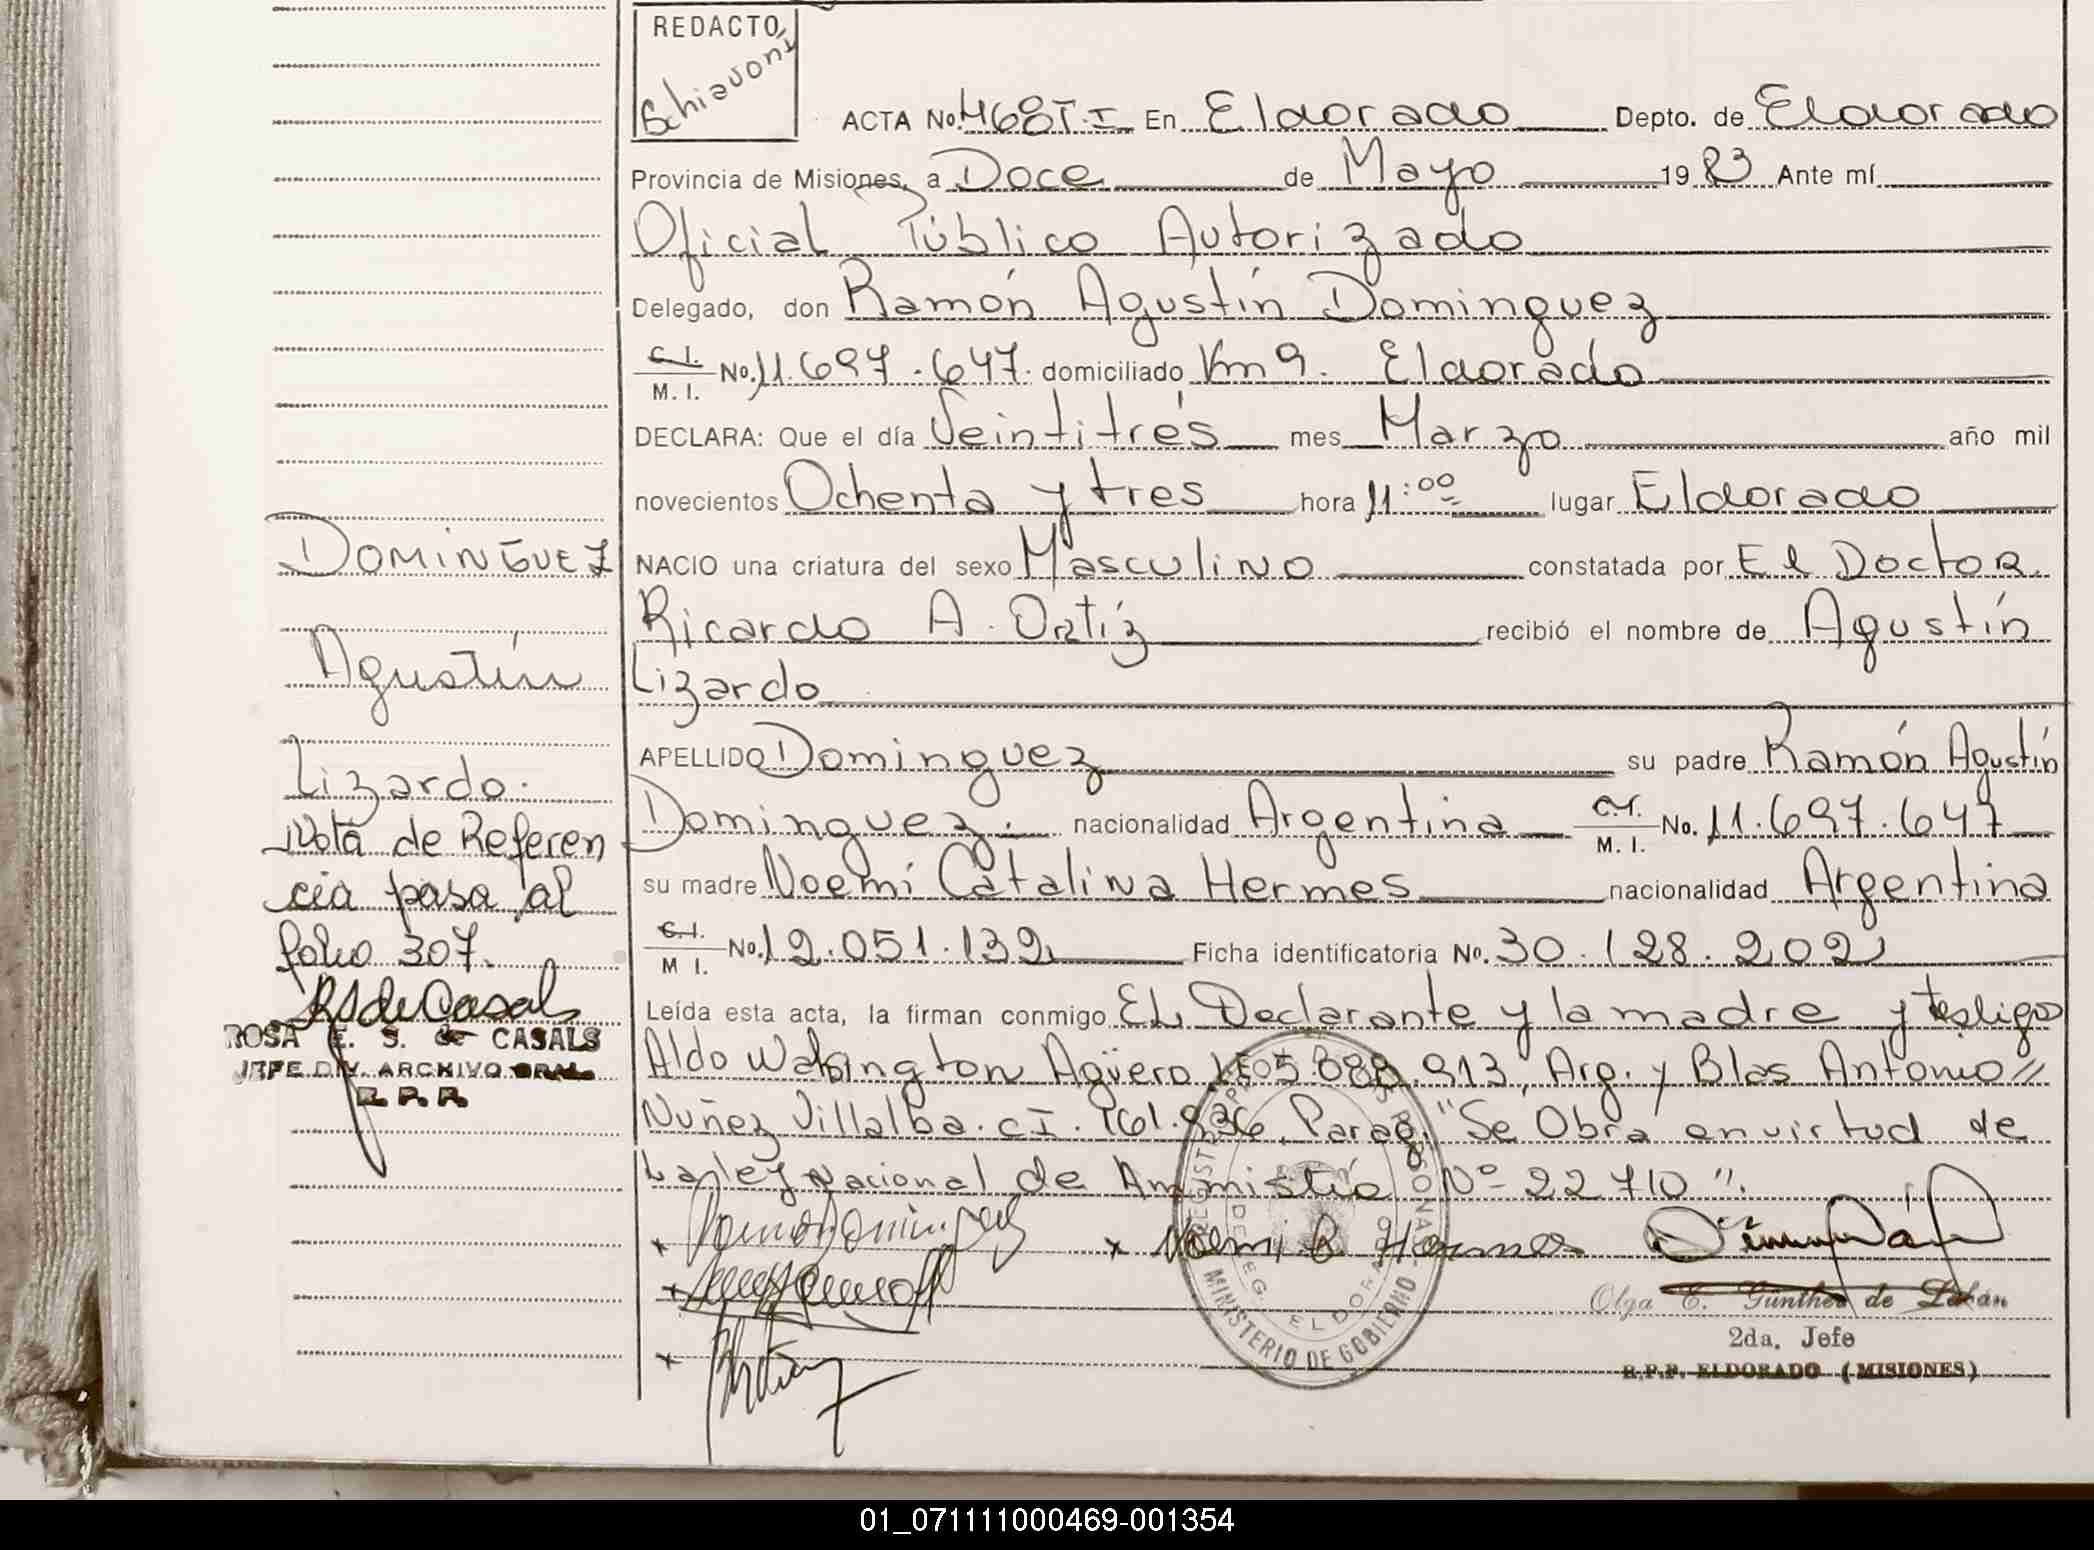 REDACTO
Schiavoni
ACTA No. 468 T. I En Eldorado Depto. de Eldorado
Provincia de Misiones, a Doce de Mayo 1983 Ante mí
Oficial Público Autorizado
Delegado, don Ramón Agustín Dominguez
C. I. M. I. No. 11.697.647. domiciliado Km 9. Eldorado
DECLARA: Que el día Veintitrés mes Marzo año mil
novecientos Ochenta y tres hora 11:00 lugar Eldorado
NACIO una criatura del sexo Masculino constatada por El Doctor
Ricardo A. Ortíz recibió el nombre de Agustín
Lizardo
APELLIDO Dominguez su padre Ramón Agustín
Dominguez. nacionalidad Argentina C.I. M. I. No. 11.697.647
su madre Noemí Catalina Hermes nacionalidad Argentina
C.I. M I. No. 12.051.132 Ficha identificatoria No. 30.128.202
Leída esta acta, la firman conmigo El Declarante y la madre y testigos
Aldo Washington Agüero LE 05.088.913, Arg. y Blas Antonio //
Nuñez Villalba. CI. 161.926 Parag. "Se Obra en virtud de
La ley Nacional de Ammistía Nº 22710".
Noemi C Hermes
Olga E. Günther de Lakán
2da. Jefe
R.P.P. ELDORADO (MISIONES)
MINISTERIO DE GOBIERNO
DELEG. ELDORADO
DOMINGUEZ
Agustín
Lizardo.
Nota de Referen
cia pasa al
folio 307.
RS de Casals
ROSA E. S. de CASALS
JEFE DIV. ARCHIVO GRAL.
R. P. P.
01_071111000469-001354